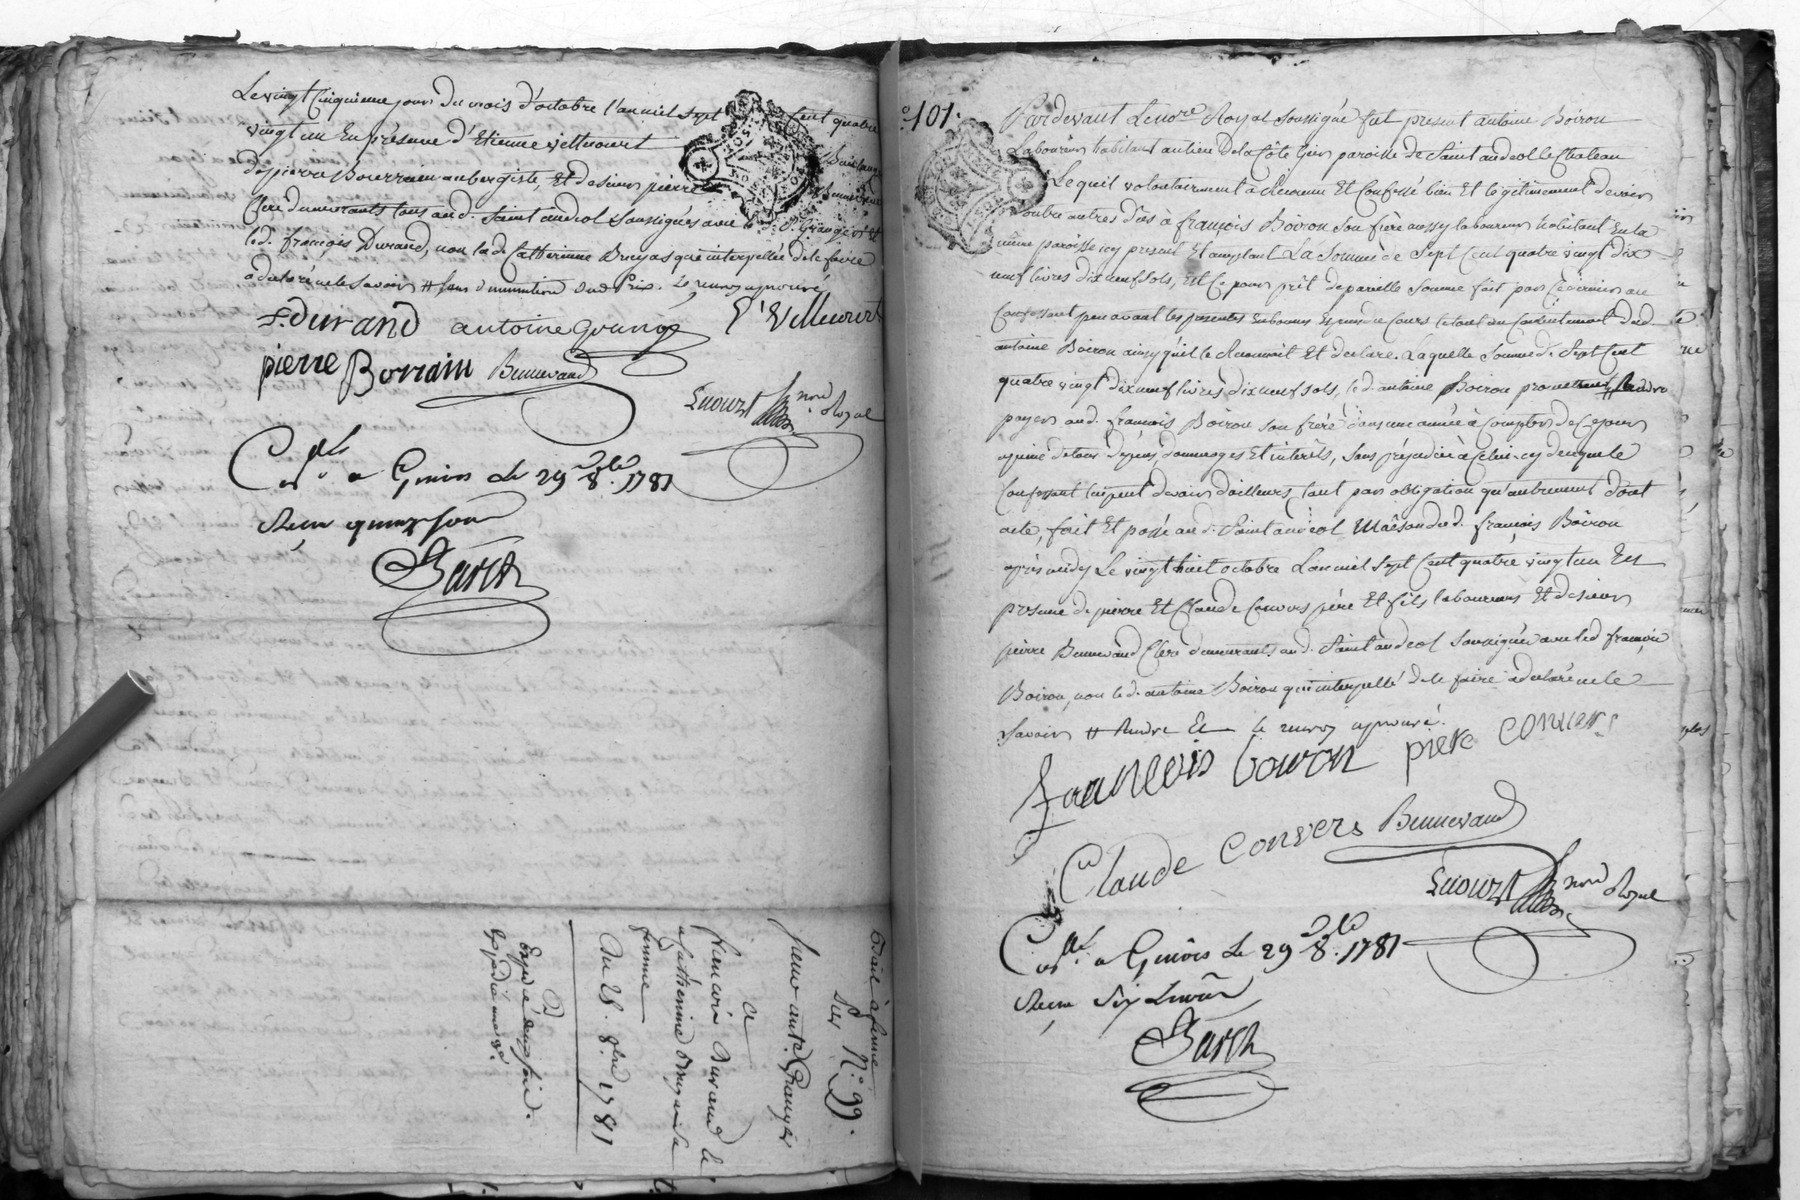 Le vingt Cinquieme jour Du mois d'octobre l'an mil sept Cent quatre
vingt un En presence d'Etienne Villecourt
de pierre Bourrain aubergiste, Et de sieur pierre Bennevand
Clerc demeurants tous aud. Saint andeol soussignés avec led. Sr. Granger Et
led. françois Durand, non lad. Catherinne Bruyas qui interpellée de le faire
a declaré ne le savoir # sans diminution dud Prix. le renvoy approuvé
f. durand antoine Grange E. Villecourt
pierre Borrain Bennevand
not. Royal
Conlé. a Givors Le 29 8bre. 1781
Reçu quinze sous
Bail à ferme
Du N.o 99.
sieur ant.e Granger
a
francois Durand Et
Catherinne Bruyas sa
femme
Du 25. 8bre 1781
Expedié
101.
Pardevant Le no.re Royal soussigné fut present antoine Boiron
Laboureur habitant au lieu De la Côte Gier paroisse de Saint andeol le Chateau
Lequel volontairement à Reconnu Et Confessé bien Et légitimement devoir
à françois Boiron son frère aussy laboureur habitant En la
même paroisse icy present Et acceptant La somme de Sept Cent quatre vingt dix
neuf livres dix neuf sols, Et Ce pour prêt de pareille somme fait par Ce dernier au
Confessant peu avant les presentes En bonnes Especes du Cours le tout du Consentement dud.
antoine Boiron ainsy qu'il le Reconnoit Et declare. Laquelle somme de Sept Cent
quatre vingt dix neuf livres dix neuf sols, led. antoine Boiron promet #
payer aud. françois Boiron son frère dans une année à Compter de Ce jour
a peine de tous depens, dommages Et interêts, sans préjudice à Celui-cy de ce que le
Confessant luy peut devoir d'ailleurs, tant par obligation qu'autrement dont
acte, fait Et passé aud. Saint andeol Maison dud. françois Boiron
après midy Le vingt huit octobre L'an mil Sept Cent quatre vingt un En
presence de pierre Et Claude Convers père Et fils laboureurs Et de sieur
pierre Bennevand Clerc demeurants aud. Saint andeol soussignés avec led. françois
Boiron, non led. antoine Boiron qui interpellé de le faire a declaré ne le
savoir # Rendre Et le renvoy approuvé.
francois boiron piere convers
Claude convers Bennevand
not. Royal
Conlé. a Givors Le 29 8bre. 1781
Reçu Six Livres